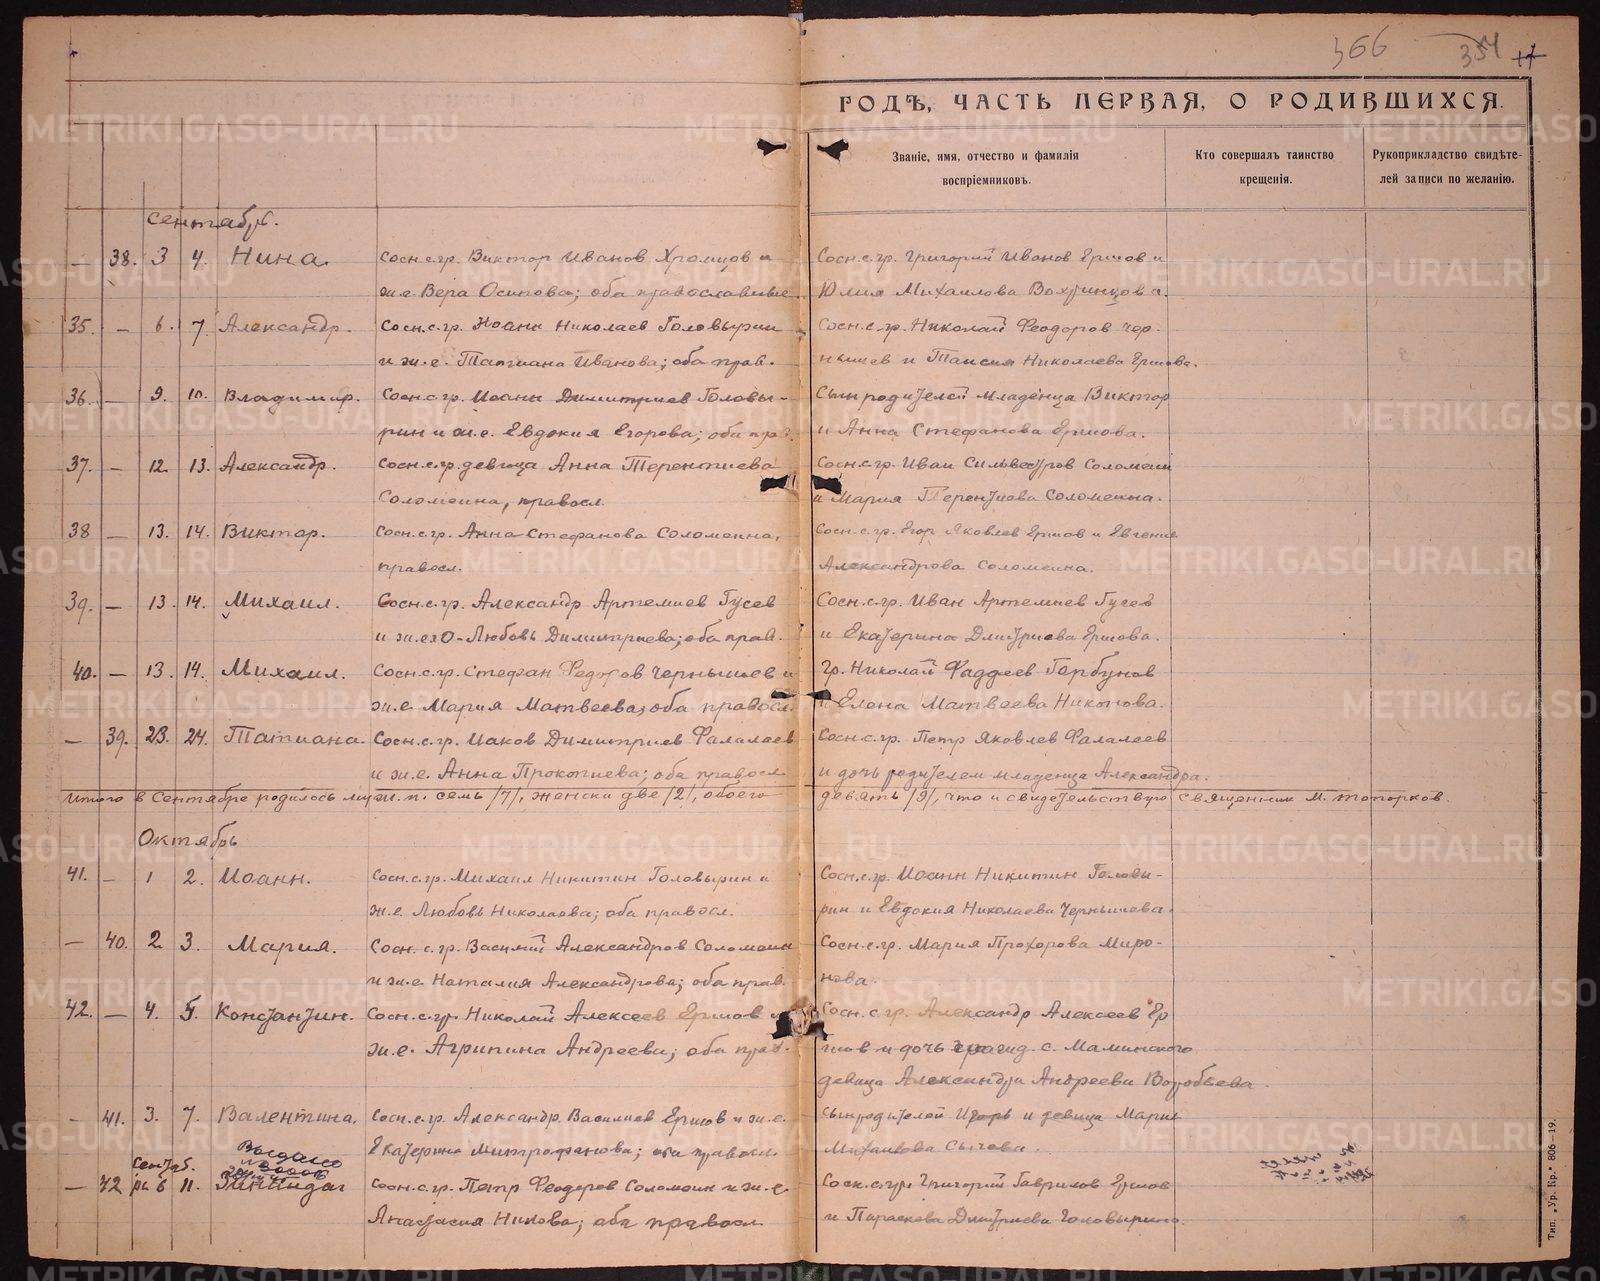 366 354
ГОДЪ, ЧАСТЬ ПЕРВАЯ, О РОДИВШИХСЯ.
Званіе, имя, отчество и фамилія
воспріемниковъ.
Кто совершалъ таинство
крещенія.
Рукоприкладство свидѣте-
лей записи по желанію.
Сентябрь.
— 38. 3 4. Нина. Сосн.с.гр. Виктор Иванов Хромцов и
ж.е. Вера Осипова; оба православные
Сосн.с.гр. Григорий Иванов Ершов и
Юлия Михаилова
35. — 6. 7. Александр. Сосн.с.гр. Иоанн Николаев Головырин
и ж.е. Татиана Иванова; оба прав.
Сосн.с.гр. Николай Феодоров Чер-
нышев и Таисия Николаева Ершова.
36. — 9. 10. Владимир. Сосн.с.гр. Иоанн Димитриев Головы-
рин и ж.е. Евдокия Егорова; оба прав.
Сын родителей младенца Виктор
и Анна Стефанова Ершова.
37. — 12. 13. Александр. Сосн.с.гр. девица Анна Терентиева
Соломеина, правосл.
Сосн.с.гр. Иван Сильвестров Соломеин
и Мария Терентиева Соломеина.
38 — 13. 14. Виктор. Сосн.с.гр. Анна Стефанова Соломеина,
правосл.
Сосн.с.гр. Егор Яковлев Ершов и Евгения
Александрова Соломеина.
39. — 13. 14. Михаил. Сосн.с.гр. Александр Артемиев Гусев
и ж.его Любовь Димитриева; оба прав.
Сосн.с.гр. Иван Артемиев Гусев
и Екатерина Дмитриева Ершова.
40. — 13. 14. Михаил. Сосн.с.гр. Стефан Федоров Чернышев и
ж.е. Мария Матвеева; оба правосл.
гр. Николай Фаддеев Горбунов
и Елена Матвеева Никонова.
— 39. 23. 24. Татиана. Сосн.с.гр. Иаков Димитриев Фалалеев
и ж.е. Анна Прокопиева; оба правосл.
Сосн.с.гр. Петр Яковлев Фалалеев
и дочь родителем младенца Александра.
Итого в Сентябре родилось муж. п. семь /7/, женска две /2/, обоего
девять /9/, что и свидетельствую священник М. Топорков.
Октябрь
41. — 1 2. Иоанн. Сосн.с.гр. Михаил Никитин Головырин и
ж.е. Любовь Николаева; оба правосл.
Сосн.с.гр. Иоанн Никитин Головы-
рин и Евдокия Николаева Чернышева.
— 40. 2. 3. Мария. Сосн.с.гр. Василий Александров Соломеин
и ж.е. Наталия Александрова; оба прав.
Сосн.с.гр. Мария Прохорова Миро-
нова.
42. — 4. 5. Константин. Сосн.с.гр. Николай Алексеев Ершов и
ж.е. Агрипина Андреева; оба прав.
Сосн.с.гр. Александр Алексеев Ер
шов и дочь с. Маминского
девица Александра Андреева Воробьева.
— 41. 3. 7. Валентина. Сосн.с.гр. Александр Василиев Ершов и ж.е.
Екатерина Митрофанова; оба правосл.
сын родителей Игорь и девица Мария
Михаилова Сычева.
Сентяб.
— 42 ря 6 11. Зинаида Сосн.с.гр. Петр Феодоров Соломеин и ж.е.
Анастасия Никова; оба правосл.
Сосн.с.гр. Григорий Гаврилов Ершов
и Параскева Дмитриева Головырина.
Тип. „Ур. Кр.“ 806—19.
METRIKI.GASO-URAL.RU